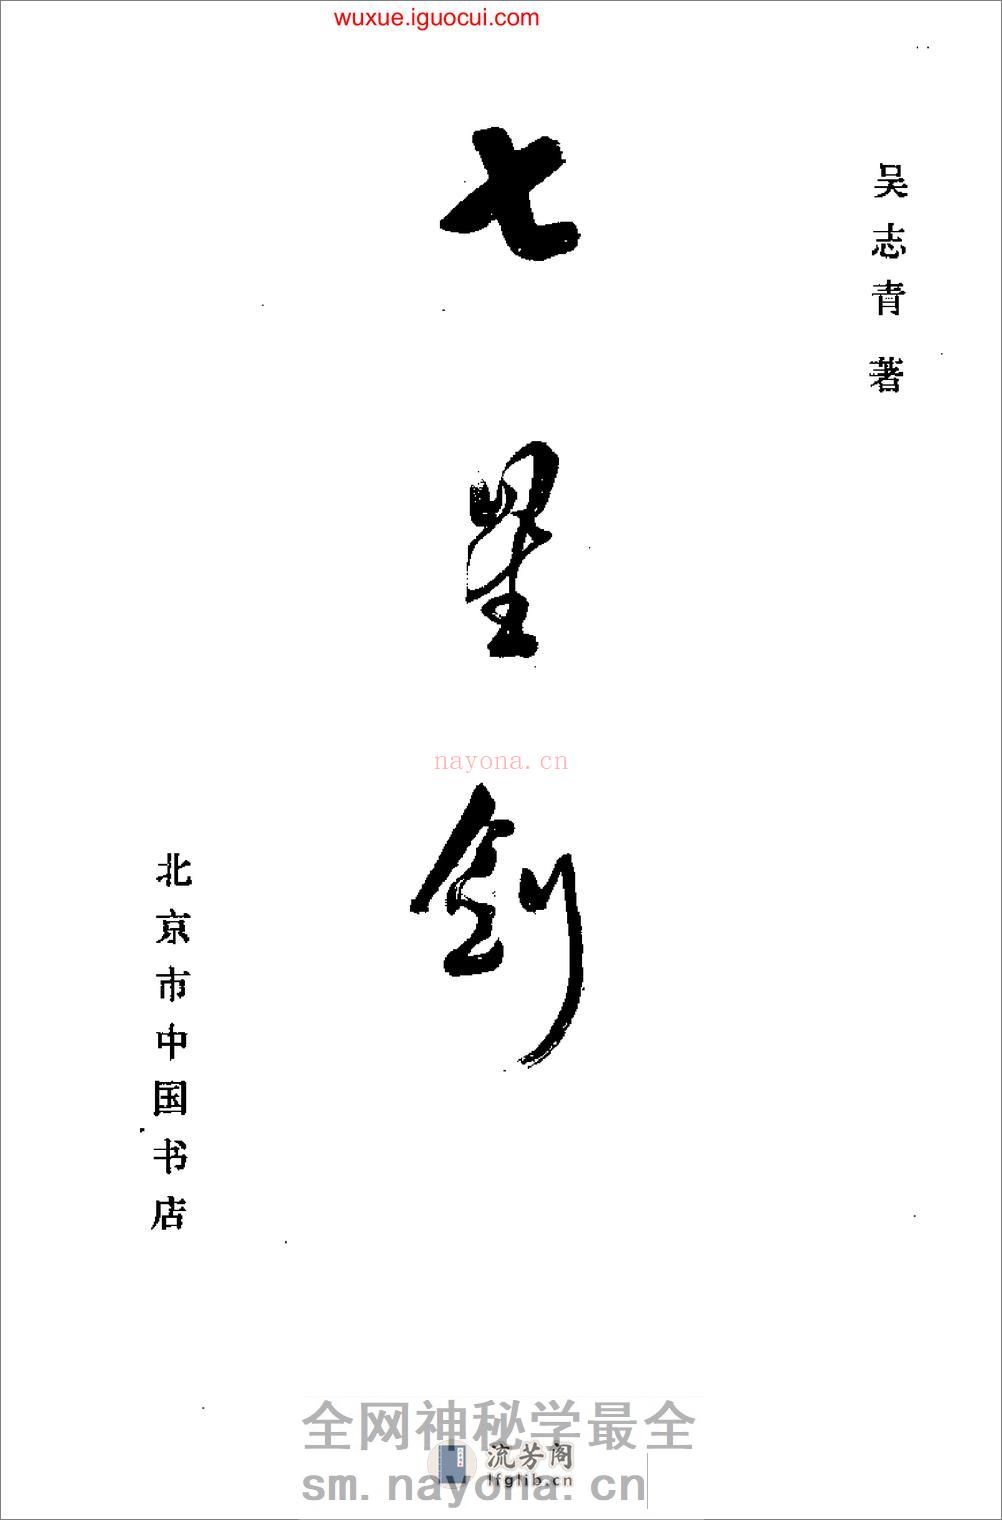 wuxue.iguocui.com
吴志青 著
七星剑
nayona.cn
北京市中国书店
全网神秘学最全
流芳阁
lfglib.cn
sm.nayona.cn